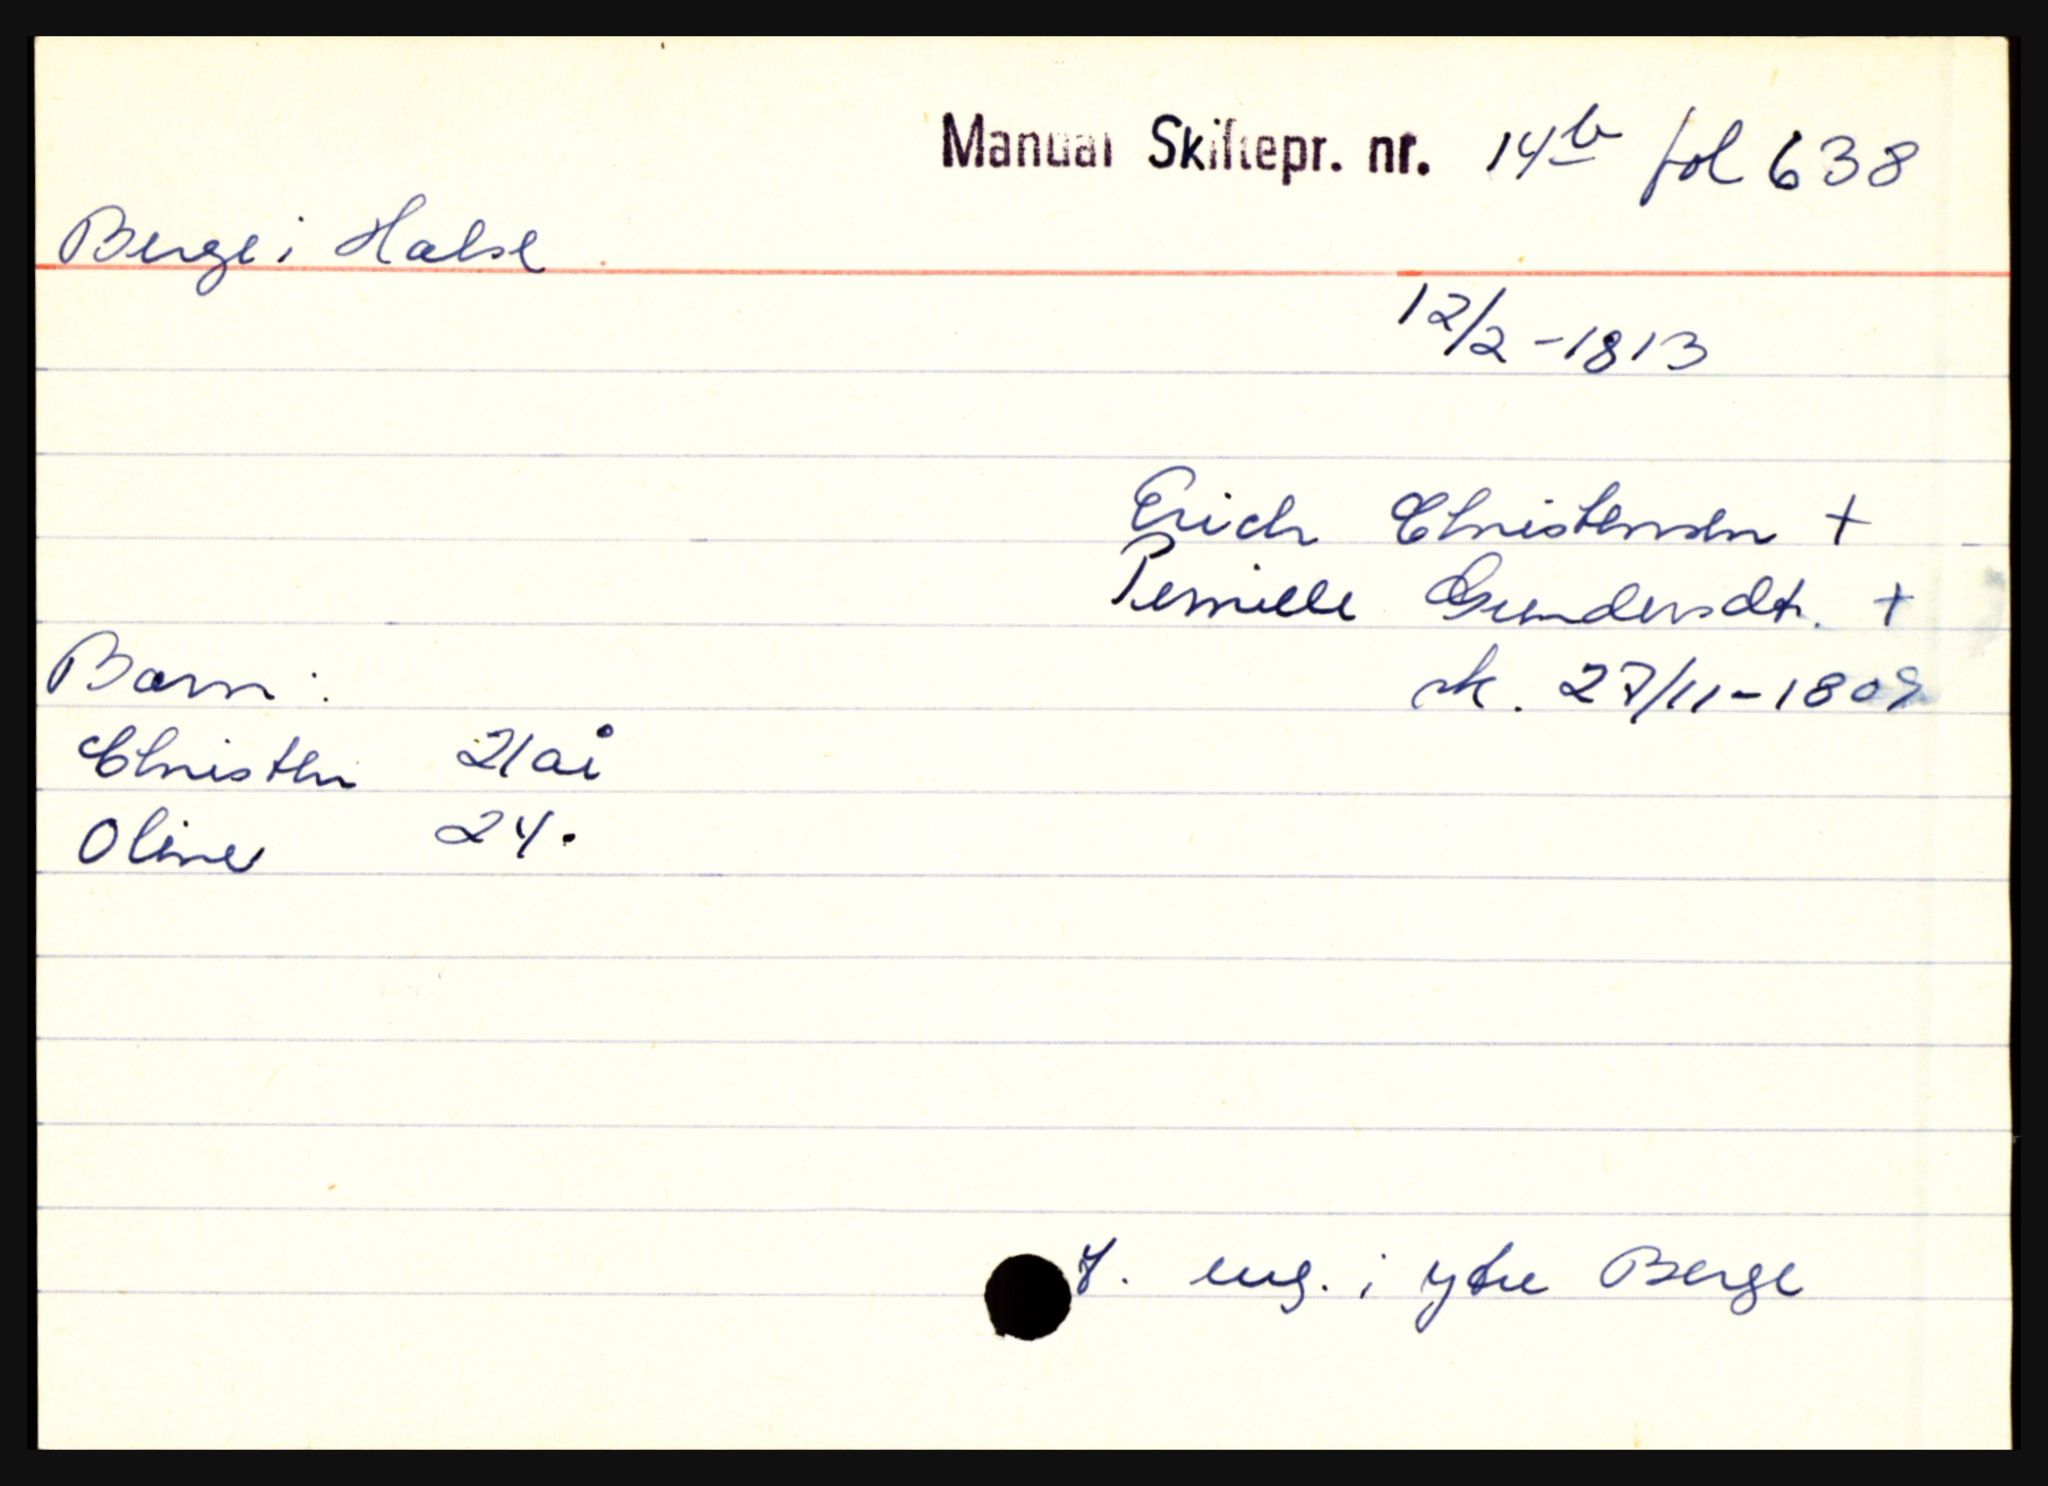 Manual Skiftepr. nr. 14b fol 638
Berge i Halse
12/2-1813
Erich Christensen +
Pernille Gundersdt. +
Barn:
sk. 27/11-1809
Christen 21 år
Oline 24.
J. eng. i ytre Berge